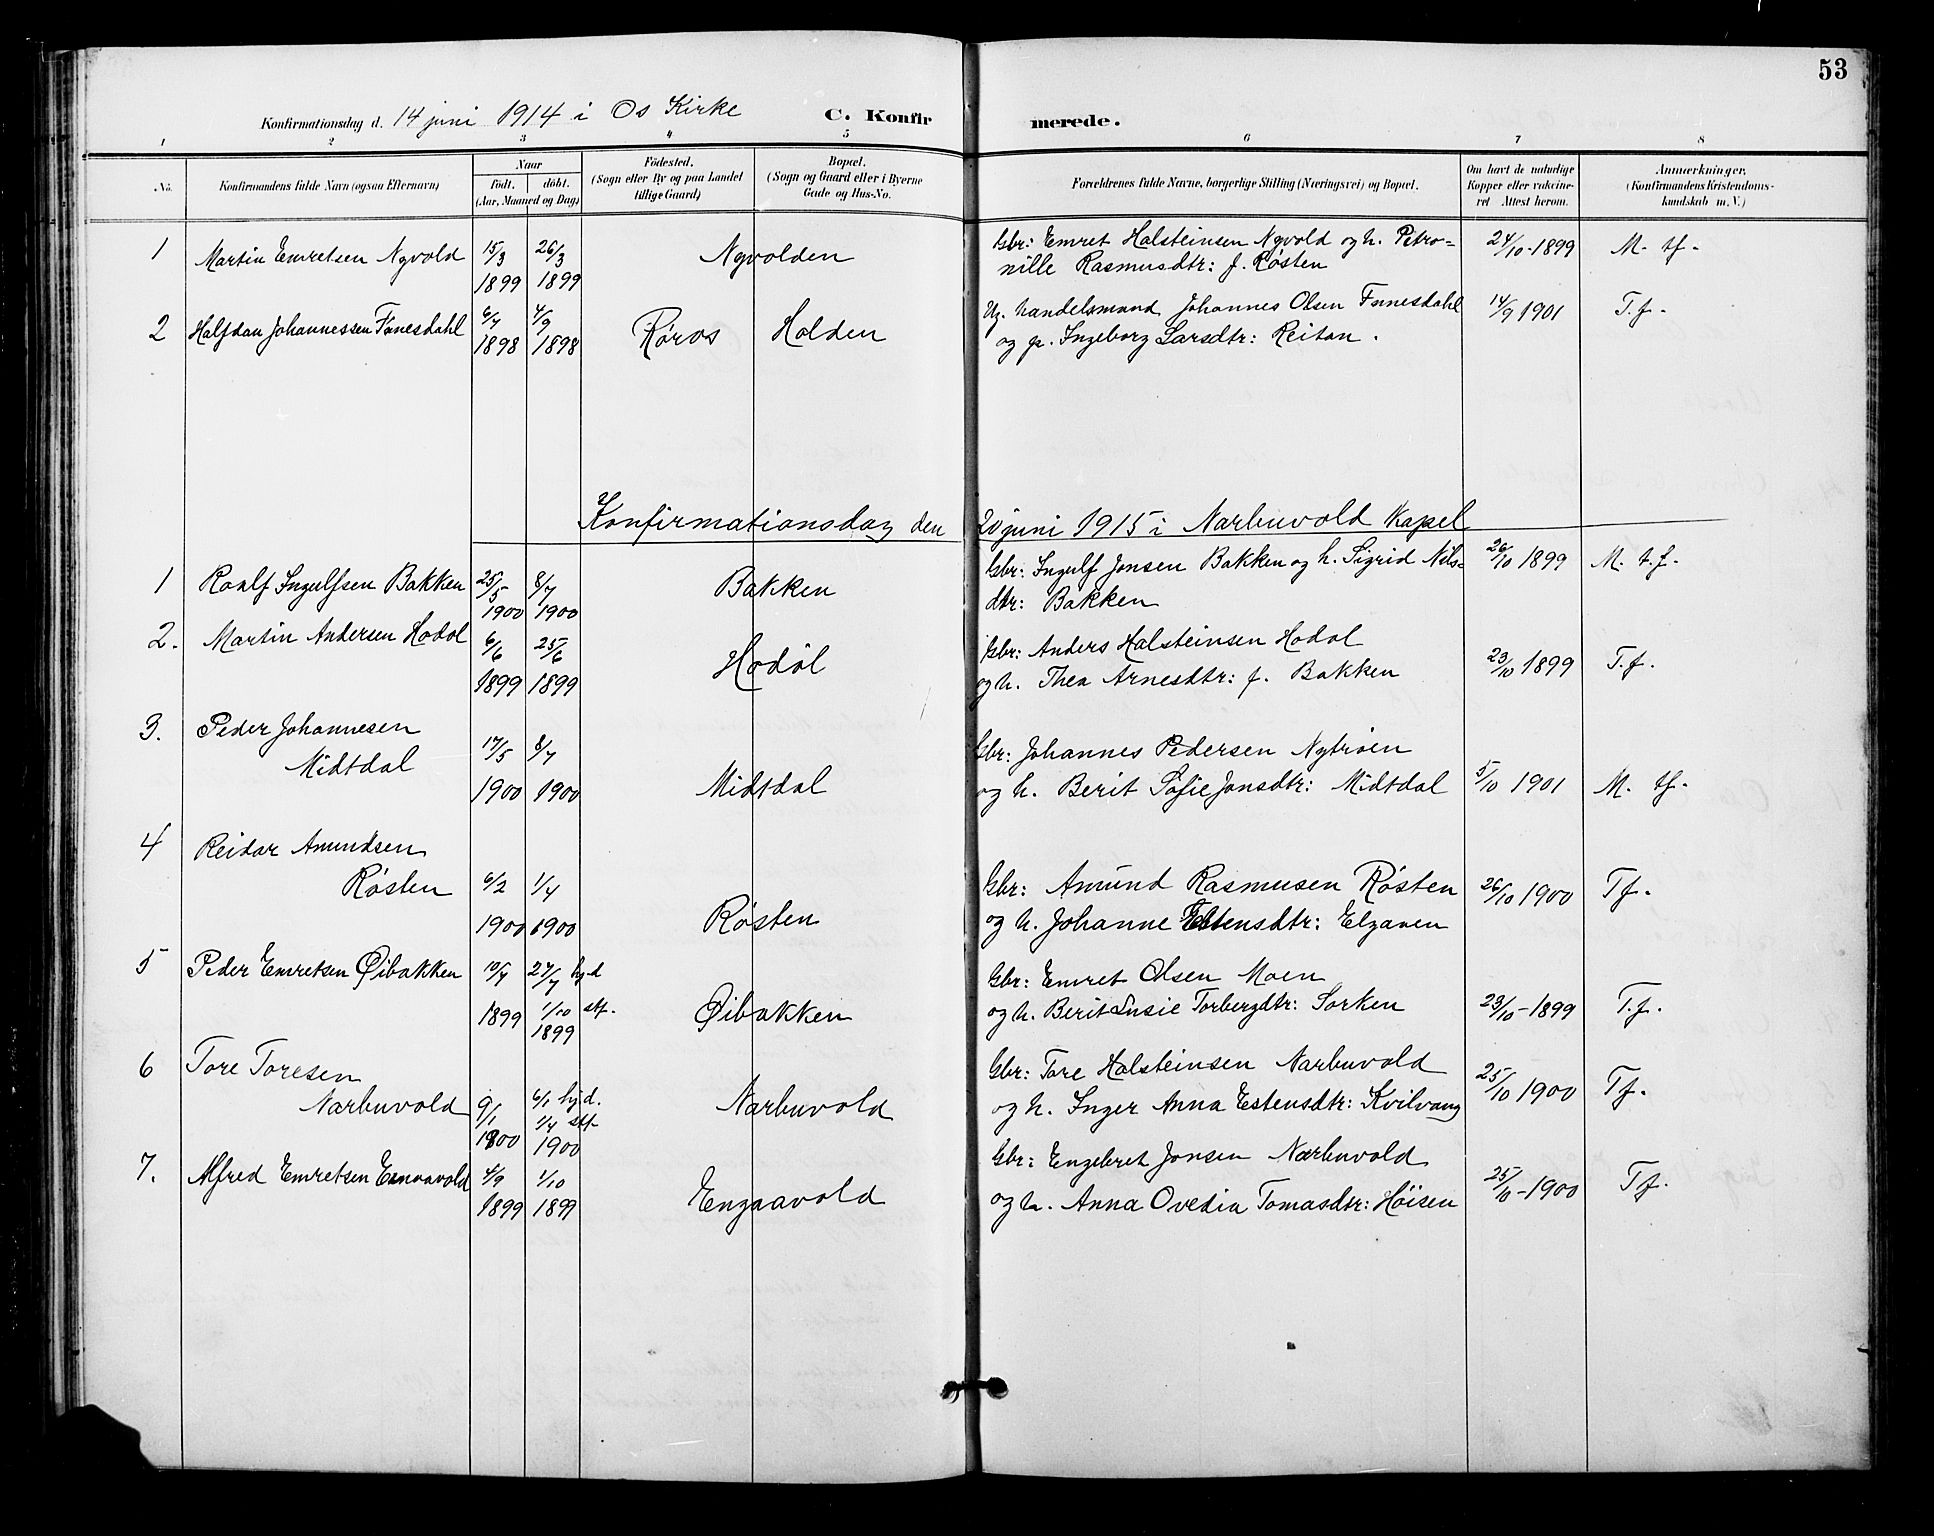 53
Konfirmationsdag d. 14 juni 1914 i Os Kirke C. Konfirmerede.
1 2 3 4 5 6 7 8
No. Konfirmandens fulde Navn (ogsaa Efternavn) Naar født. døbt. (Aar, Maaned og Dag) Fødested. (Sogn eller By og paa Landet tillige Gaard) Bopæl. (Sogn og Gaard eller i Byerne Gade og Hus-No. Forældrenes fulde Navne, borgerlige Stilling (Næringsvei) og Bopæl. Om havt de naturlige Kopper eller vakcineret Attest herom. Anmærkninger. (Konfirmandens Kristendomskundskab m. V.)
1 Martin Emretsen Nyvold 15/3 26/3 Nyvolden Gbr: Emret Halsteinsen Nyvold og h. Petro= 24/10-1899 M. tf.
1899 1899 nille Rasmusdtr: f. Røsten
2 Halfdan Johannessen Fanesdahl 6/7 4/9 Røros Holden Ug. handelsmand Johannes Olsen Fanesdahl 14/9 1901 T.f.
1898 1898 og p. Ingeborg Larsdtr: Reitan.
Konfirmationsdag den 20 juni 1915 i Narbuvold Kapel
1 Roalf Ingulfsen Bakken 25/5 8/7 Bakken Gbr: Ingulf Jonsen Bakken og h. Sigrid Nils= 26/10 1899 M. t.f.
1900 1900 dtr: Bakken
2. Martin Andersen Hodøl 6/6 25/6 Hodøl Gbr: Anders Halsteinsen Hodøl 23/10 1899 T.f.
1899 1899 og h. Thea Arnesdtr: f. Bakken
3. Peder Johannesen
Midtdal 17/5 8/7 Midtdal Gbr: Johannes Pedersen Nytrøen
1900 1900 og h. Berit Sofie Jonsdtr: Midtdal 5/10 1901 M. tf.
4 Reidar Amundsen
Røsten 6/2 1/4 Røsten Gbr: Amund Rasmusen Røsten 26/10 1900 Tf.
1900 1900 og h. Johanne Estensdtr: Elgaaen
5 Peder Emretsen Øibakken 10/7 27/7 hjd Øibakken Gbr: Emret Olsen Moen
1899 1/10 stf. og h. Berit Lusie Torbergdtr: Sorken 23/10-1899 T.f.
1899
6 Tore Toresen Gbr: Tore Halsteinsen Narbuvold 25/10 1900 Tf.
Narbuvold 9/1 6/1 hjd. Narbuvold og h. Inger Anna Estensdtr: Kvilvang
1/4 stf.
1900 1900
7. Alfred Emretsen 4/9 1/10 Engaavold Gbr: Engebret Jonsen Narbuvold 25/10-1900 Tf.
1899 1899 og h. Anna Ovedia Tomasdtr: Høisen